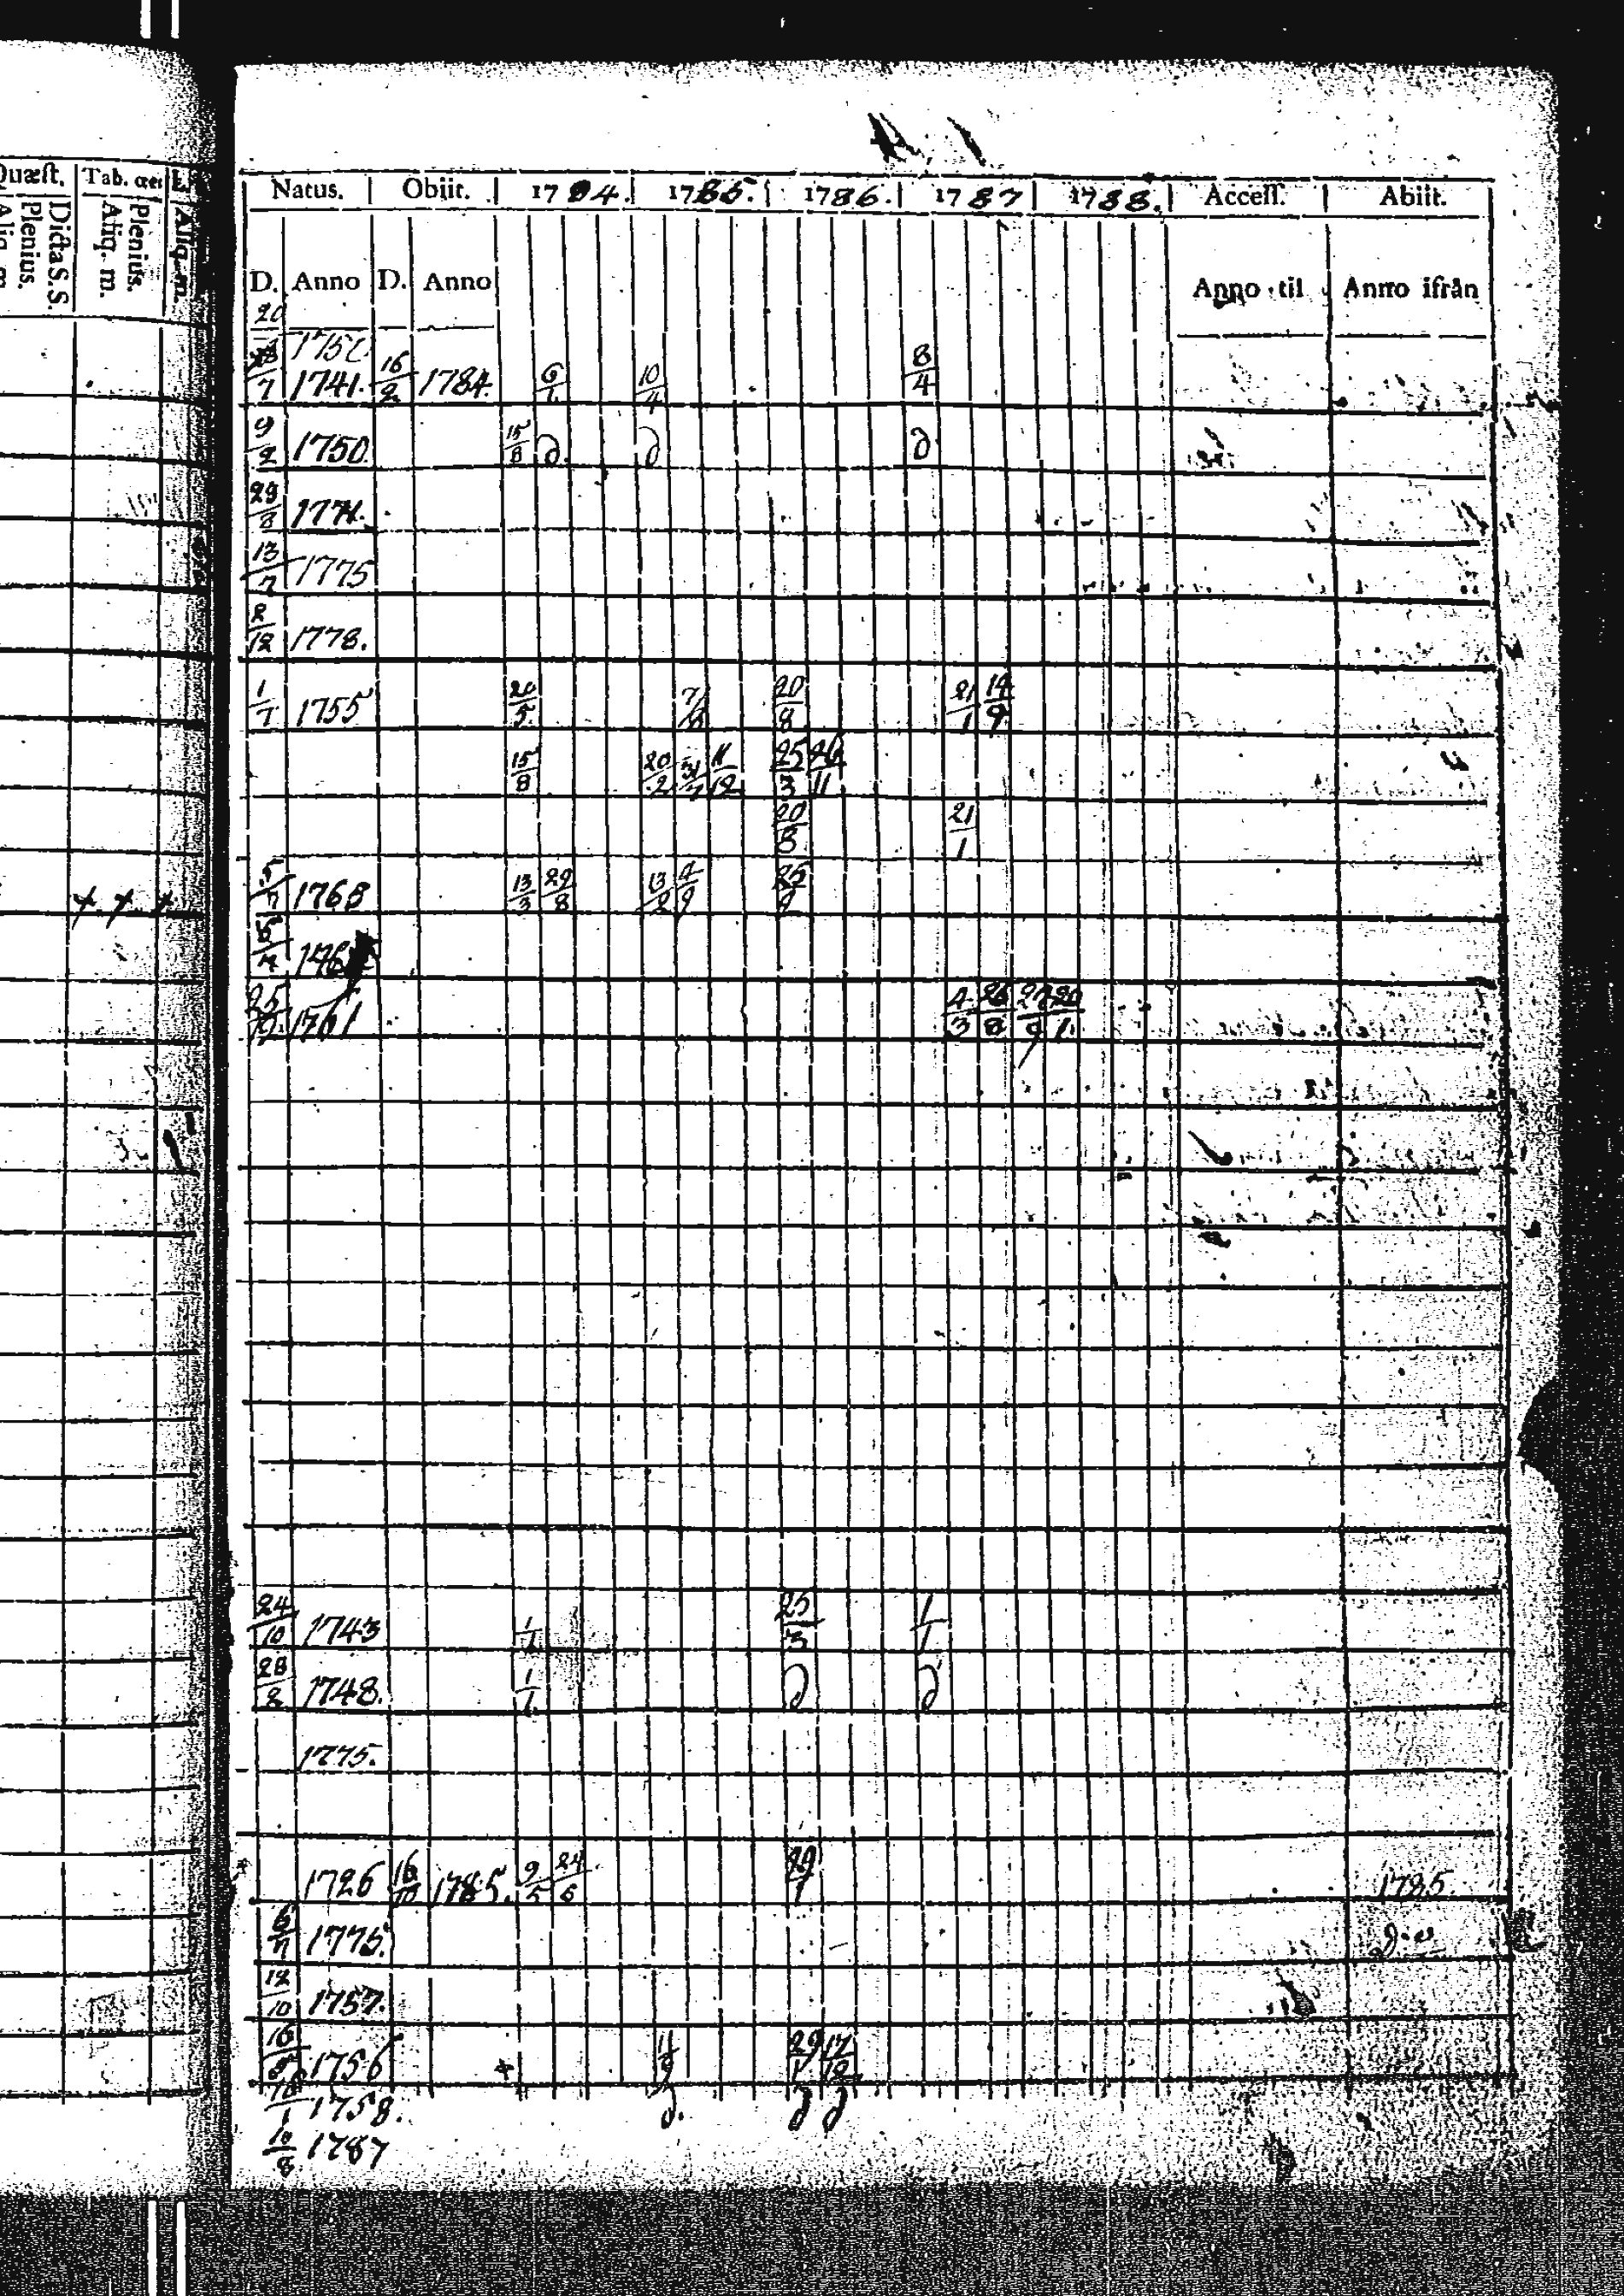 Quæſt. Tab. œc.
Dicta S. S.
Plenius.
Aliq. m.
Plenius.
Aliq. m.
Aliq. m.
Natus. Obiit. 1784. 1785. 1786. 1787 1788. Acceſſ. Abiit.
D. Anno D. Anno Anno til Anno ifrån
20
7 1741. 16/2 1784. 6/1 10/4 8/4
9/2 1750. 15/8 d. d d
29/8 1771.
13/7 1775
2/12 1778.
1/7 1755 20/5 7/8 20/8 21/1 14/9
15/8 20/2 31/7 11/12 25/3 26/11
20/8 21/1
5/7 1768 13/3 29/8 13/2 4/9 25/9
25/12 1761 4/3 26/8 27/9 20/1
+ + +
24/10 1743 1/1 25/3 1/1
28/8 1748. 1/1 d d
1775.
1726 16/10 1785. 9/5 24/6 29/1 1785.
6/11 1775. d:o
12/10 1757.
16/8 1756 + 11/9 29/1 17/12
16/1 1758. d. d d
10/8 1787